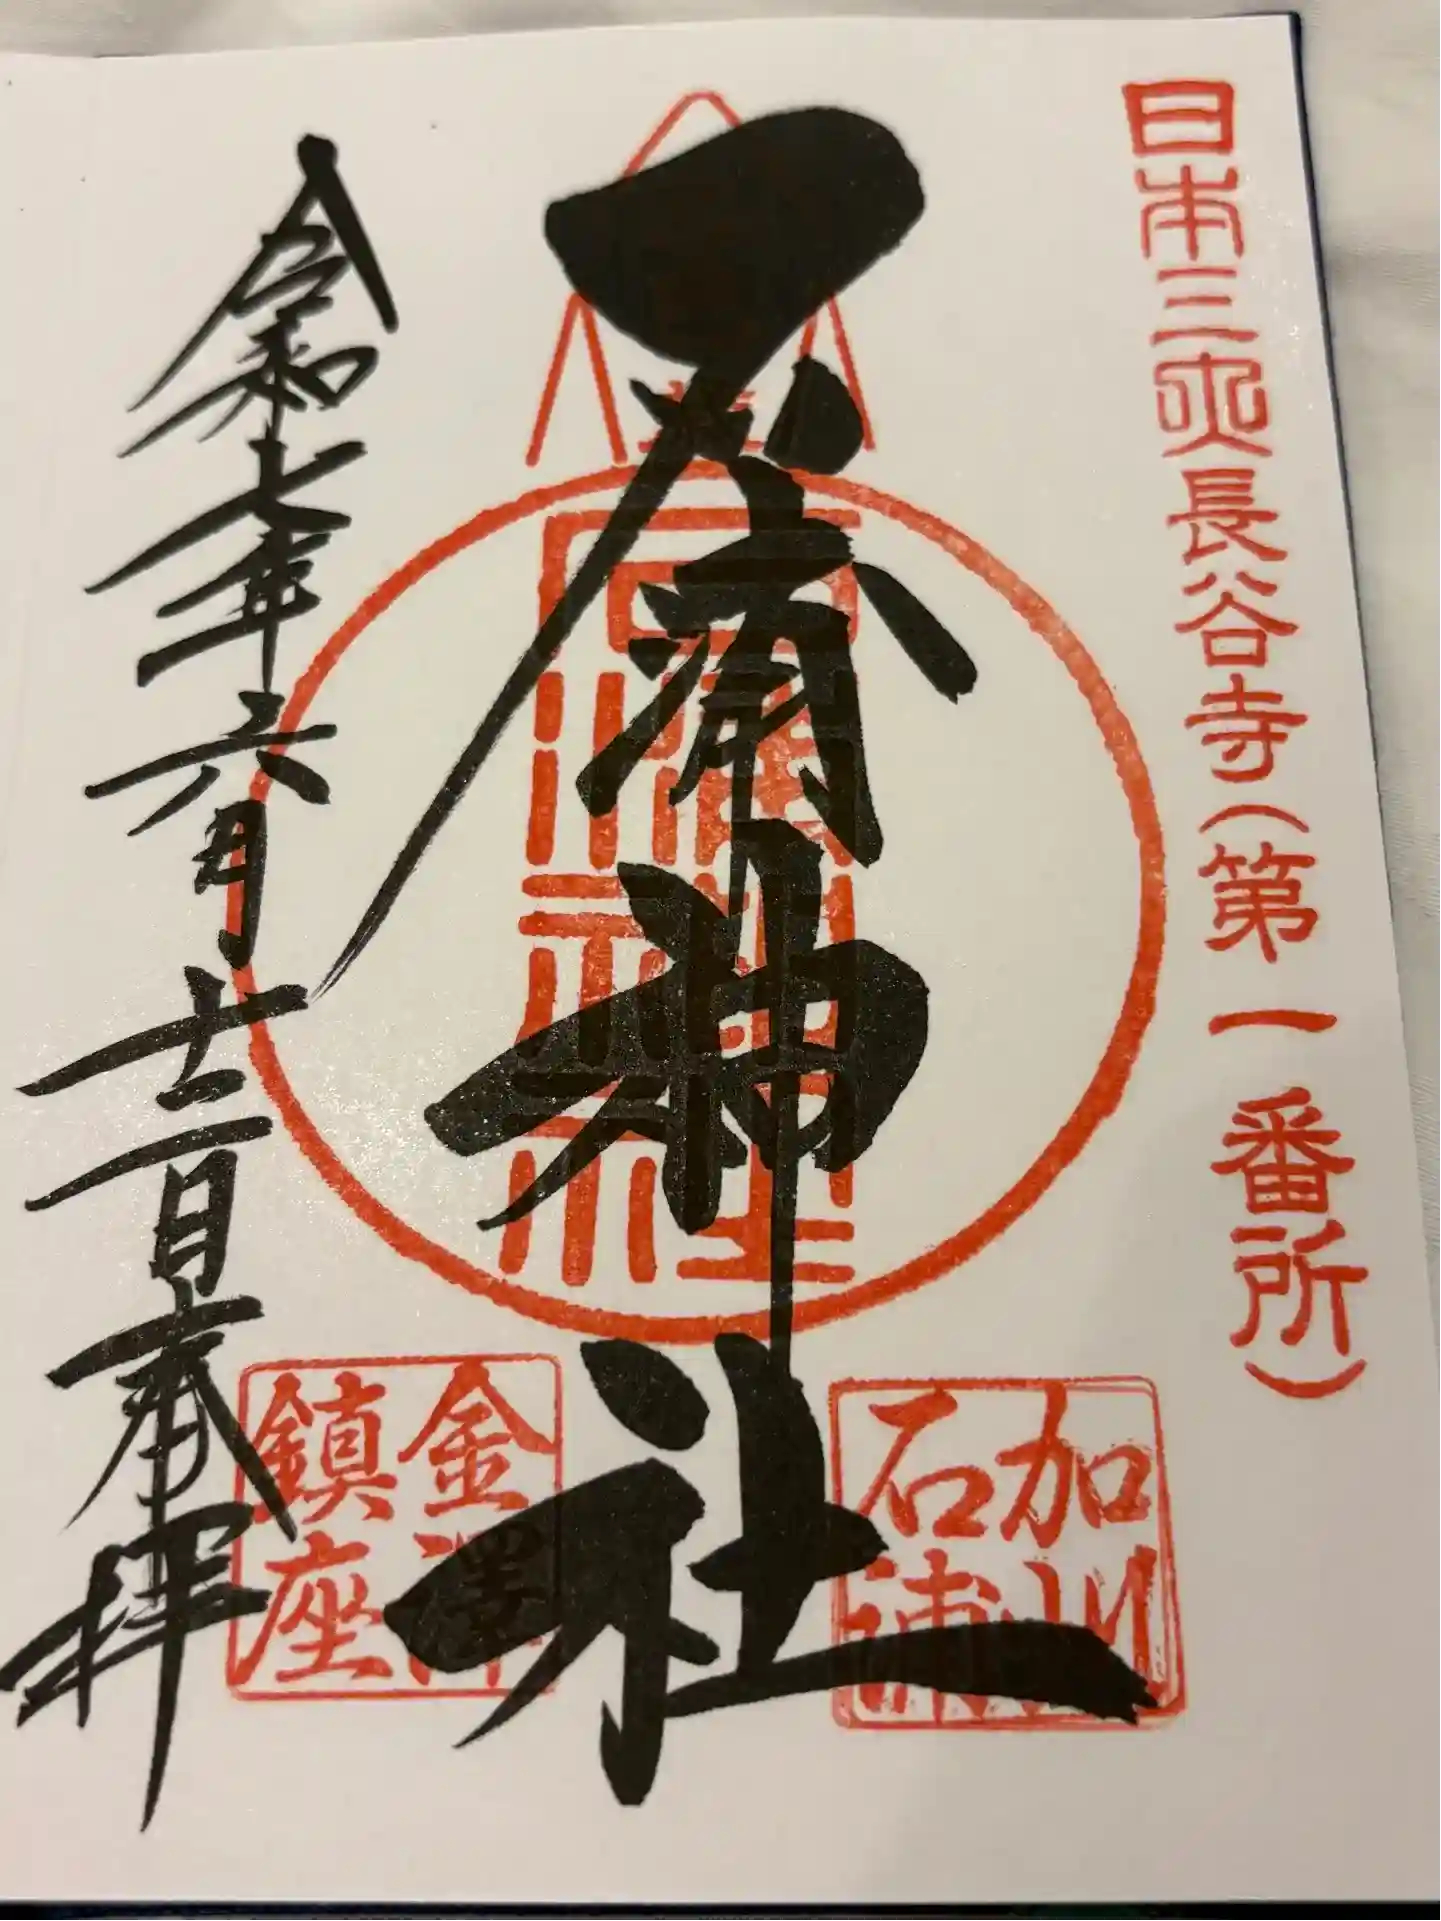 日本三大長谷寺(第一番所)
石浦神社
石浦神社
加州
石浦
金澤
鎮座
令和七年六月十二日奉拝